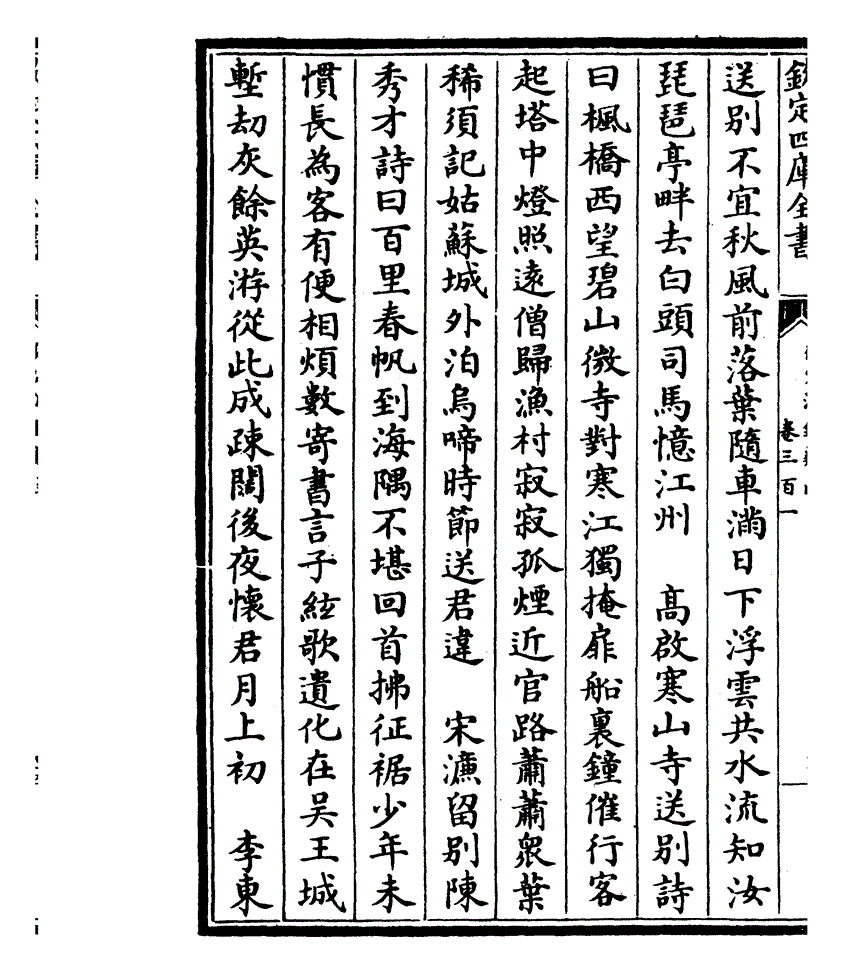 欽定四庫全書
卷三百一
送别不宜秋風前落葉隨車滿日下浮雲共水流知汝
琵琶亭畔去白頭司馬憶江州　高啟寒山寺送别詩
曰楓橋西望碧山微寺對寒江獨掩扉船裏鐘催行客
起塔中燈照逺僧歸漁村寂寂孤煙近官路蕭蕭衆葉
稀須記姑蘇城外泊烏啼時節送君違　宋濂留别陳
秀才詩曰百里春帆到海隅不堪回首拂征裾少年未
慣長為客有便相煩數寄書言子絃歌遺化在吴王城
塹刧灰餘英游從此成疎闊後夜懷君月上初　李東